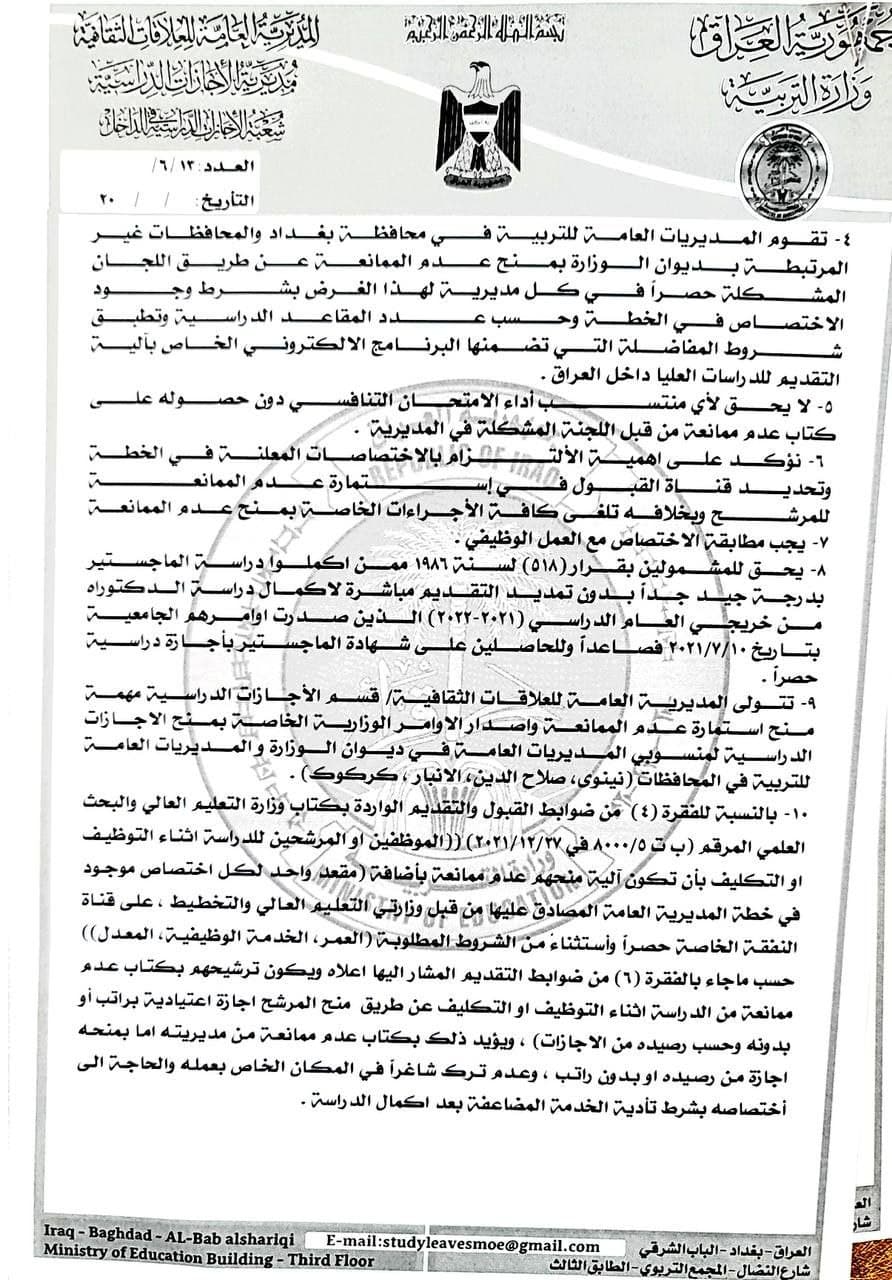 جمهورية العراق
وزارة التربية
بسم الله الرحمن الرحيم
المديرية العامة للعلاقات الثقافية
مديرية الأجازات الدراسية
شعبة الأجازات الدراسية في الداخل
العدد: ٦/١٣/
التأريخ: / / ٢٠
٤- تقوم المديريات العامة للتربية في محافظة بغداد والمحافظات غير
المرتبطة بديوان الوزارة بمنح عدم الممانعة عن طريق اللجان
المشكلة حصراً في كل مديرية لهذا الغرض بشرط وجود
الاختصاص في الخطة وحسب عدد المقاعد الدراسية وتطبق
شروط المفاضلة التي تضمنها البرنامج الالكتروني الخاص بآلية
التقديم للدراسات العليا داخل العراق .
٥- لا يحق لأي منتسب أداء الامتحان التنافسي دون حصوله على
كتاب عدم ممانعة من قبل اللجنة المشكلة في المديرية .
٦- نؤكد على اهمية الألتزام بالاختصاصات المعلنة في الخطة
وتحديد قناة القبول في إستمارة عدم الممانعة
للمرشح وبخلافه تلغى كافة الأجراءات الخاصة بمنح عدم الممانعة
٧- يجب مطابقة الاختصاص مع العمل الوظيفي .
٨- يحق للمشمولين بقرار (٥١٨) لسنة ١٩٨٦ ممن اكملوا دراسة الماجستير
بدرجة جيد جداً بدون تمديد التقديم مباشرة لاكمال دراسة الدكتوراه
من خريجي العام الدراسي (٢٠٢١-٢٠٢٢) الذين صدرت اوامرهم الجامعية
بتاريخ ٢٠٢١/٧/١٠ فصاعداً وللحاصلين على شهادة الماجستير بأجازة دراسية
حصراً .
٩- تتولى المديرية العامة للعلاقات الثقافية/ قسم الأجازات الدراسية مهمة
منح استمارة عدم الممانعة واصدار الاوامر الوزارية الخاصة بمنح الاجازات
الدراسية لمنسوبي المديريات العامة في ديوان الوزارة و المديريات العامة
للتربية في المحافظات (نينوى، صلاح الدين، الانبار ، كركوك) .
١٠- بالنسبة للفقرة (٤) من ضوابط القبول والتقديم الواردة بكتاب وزارة التعليم العالي والبحث
العلمي المرقم (ب ت ٨٠٠٠/٥ في ٢٠٢١/١٢/٢٧) ((الموظفين او المرشحين للدراسة اثناء التوظيف
او التكليف بأن تكون آلية منحهم عدم ممانعة بأضافة (مقعد) واحد لكل اختصاص موجود
في خطة المديرية العامة المصادق عليها من قبل وزارتي التعليم العالي والتخطيط ، على قناة
النفقة الخاصة حصراً وأستثناءً من الشروط المطلوبة (العمر، الخدمة الوظيفية، المعدل))
حسب ماجاء بالفقرة (٦) من ضوابط التقديم المشار اليها اعلاه ويكون ترشيحهم بكتاب عدم
ممانعة من الدراسة اثناء التوظيف او التكليف عن طريق منح المرشح اجازة اعتيادية براتب أو
بدونه وحسب رصيده من الاجازات) ، ويؤيد ذلك بكتاب عدم ممانعة من مديريته اما بمنحه
اجازة من رصيده او بدون راتب ، وعدم ترك شاغراً في المكان الخاص بعمله والحاجة الى
أختصاصه بشرط تأدية الخدمة المضاعفة بعد اكمال الدراسة .
REPUBLIC OF IRAQ
MINISTRY OF EDUCATION
العراق-بغداد-الباب الشرقي
شارع النضال-المجمع التربوي-الطابق الثالث
E-mail:studyleavesmoe@gmail.com
Iraq - Baghdad - AL-Bab alsharqi
Ministry of Education Building - Third Floor